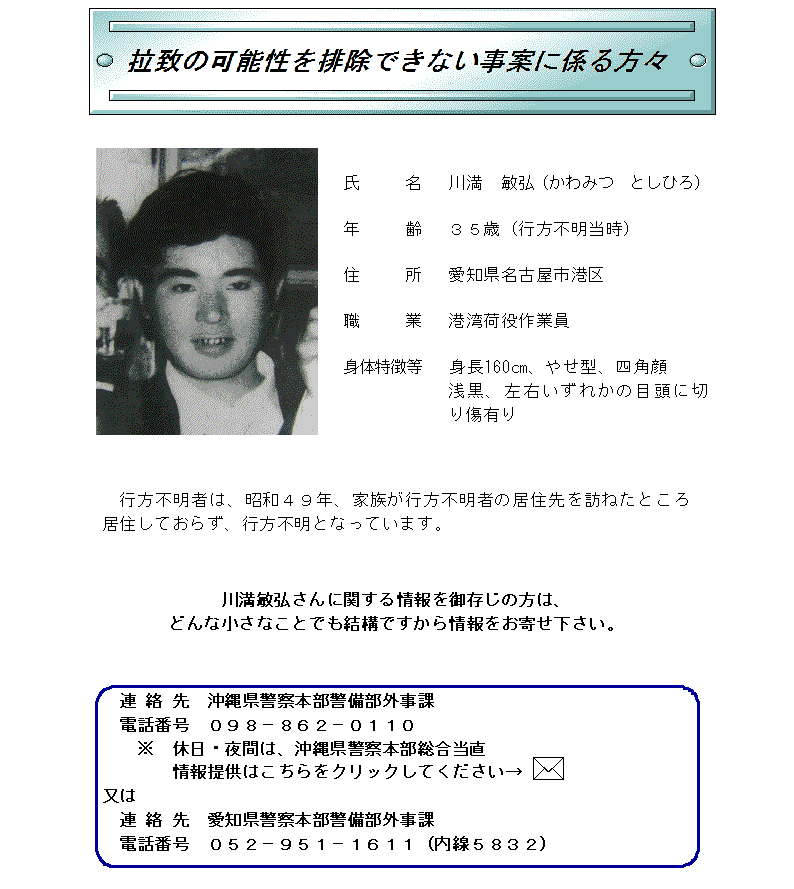 拉致の可能性を排除できない事案に係る方々
氏　　名　川満　敏弘（かわみつ　としひろ）
年　　齢　３５歳（行方不明当時）
住　　所　愛知県名古屋市港区
職　　業　港湾荷役作業員
身体特徴等　身長160cm、やせ型、四角顔
浅黒、左右いずれかの目頭に切
り傷有り
行方不明者は、昭和４９年、家族が行方不明者の居住先を訪ねたところ
居住しておらず、行方不明となっています。
川満敏弘さんに関する情報を御存じの方は、
どんな小さなことでも結構ですから情報をお寄せ下さい。
連 絡 先　沖縄県警察本部警備部外事課
電話番号　０９８－８６２－０１１０
※　休日・夜間は、沖縄県警察本部総合当直
情報提供はこちらをクリックしてください→
又は
連 絡 先　愛知県警察本部警備部外事課
電話番号　０５２－９５１－１６１１（内線５８３２）